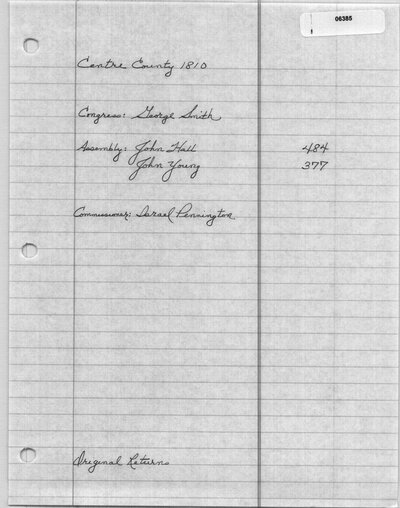 06385
Centre County 1810
Congress: George Smith
Assembly: John Hall 484
John Young 377
Commissioner: Israel Pennington
Original Returns